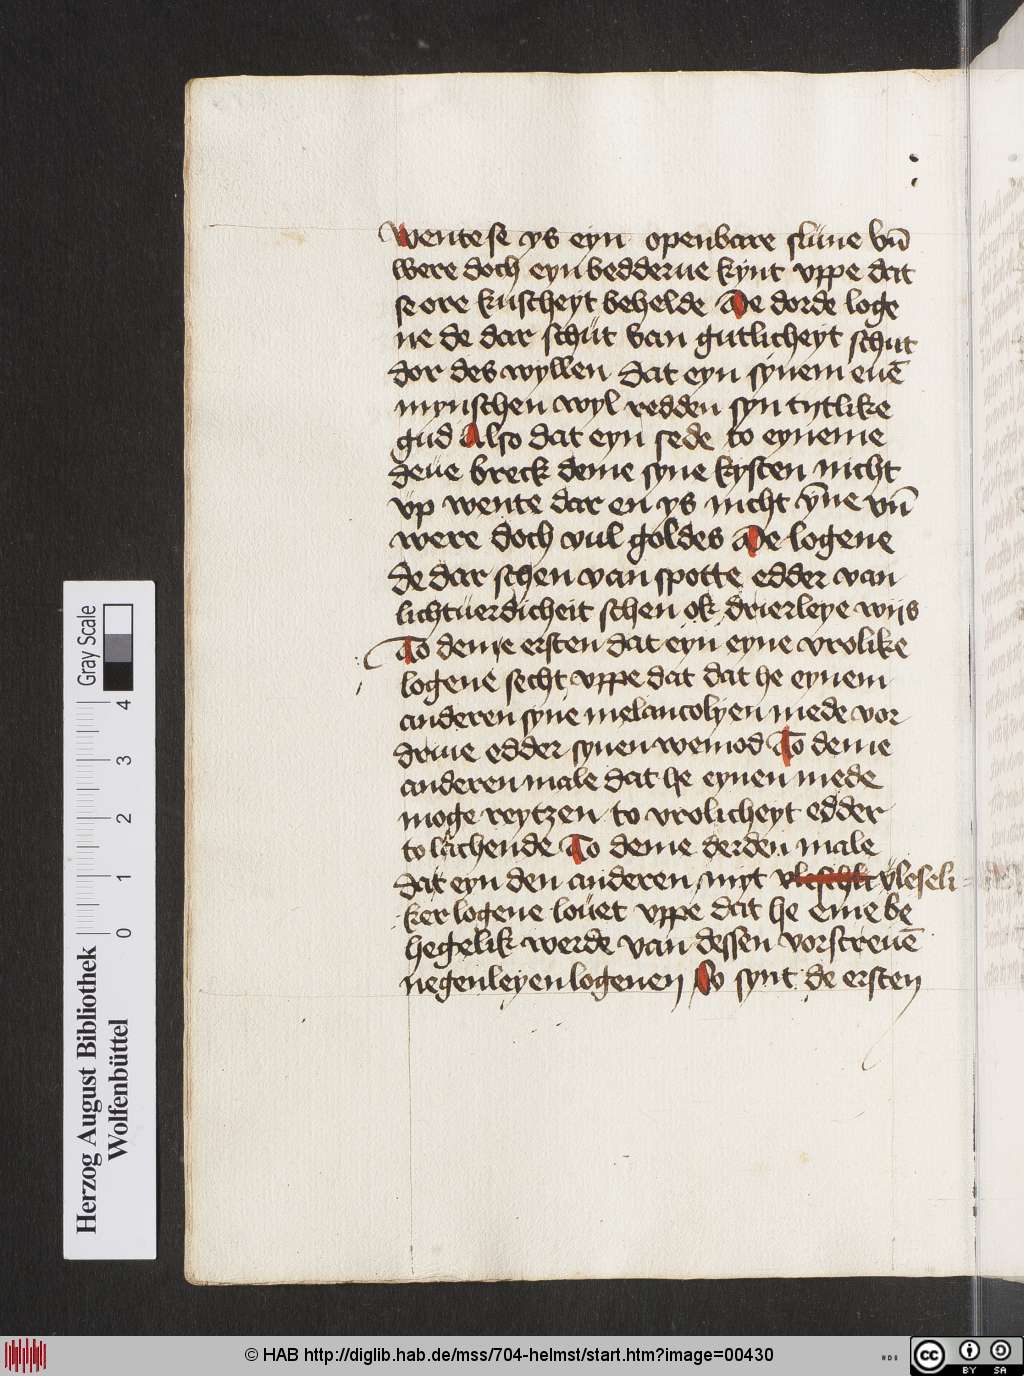 wente se ys eyn openbare slune vn̄
were doch eyn bedderue kynt vppe dat
se ore kuscheyt behelde De dorde loge
ne de dar schüt van gutlicheyt schut
dor des wyllen dat eyn synem euē
mynschen wyl redden syn tytlike
gud Also dat eyn sede to eyneme
deue breck deme syne kysten nicht
vp wente dar en ys nicht yne vn̄
were doch vul goldes De logene
de dar schen van spotte edder van
lichtuerdicheit schen ok drierleye wijs
To deme ersten dat eyn eyne vrolike
logene secht vppe dat dat he eynem
anderen syne melancolyen mede vor
driue edder synen wemod To deme
anderen male dat he eynen mede
moge reytzen to vrolicheyt edder
to lachende To deme derden male
dat eyn den anderen myt vleseli
ker logene louet vppe dat he eme be
hegelik werde van dessen vorscreuē
negenleyen logenen So synt de ersten
Gray Scale
4
3
2
1
0
Herzog August Bibliothek
Wolfenbüttel
© HAB http://diglib.hab.de/mss/704-helmst/start.htm?image=00430
cc
BY SA